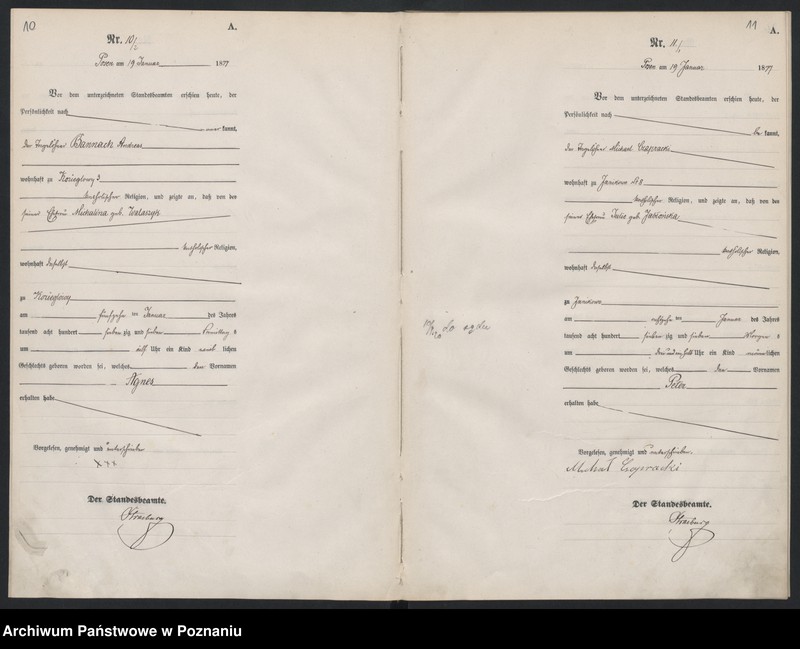 10
A.
Nr. 10/
Posen am 19 Januar 1877
Vor dem unterzeichneten Standesbeamten erschien heute, der
Persönlichkeit nach
kannt,
der Tagelöhner Bannach Andreas
wohnhaft zu Kozieglowy 3
katholischer Religion, und zeigte an, daß von der
seiner Ehefrau Michalina geb. Walaszyk
katholischer Religion,
wohnhaft daselbst
zu Kozieglowy
am fünfzehn ten Januar des Jahres
tausend acht hundert sieben zig und sieben
um elf Uhr ein Kind weib lichen
Geschlechts geboren worden sei, welches den Vornamen
Agnes
erhalten habe
Vorgelesen, genehmigt und unterschrieben
xxx
Der Standesbeamte.
Strasburg
11
A.
Nr. 11/
Posen am 19 Januar 1877
Vor dem unterzeichneten Standesbeamten erschien heute, der
Persönlichkeit nach
be kannt,
der Tagelöhner Michael
wohnhaft zu Janikowo No 8
katholischer Religion, und zeigte an, daß von der
seiner Ehefrau Julie geb.
katholischer Religion,
wohnhaft daselbst
zu Janikowo
am ten Januar des Jahres
tausend acht hundert sieben zig und sieben Morgen s
um Uhr ein Kind männ lichen
Geschlechts geboren worden sei, welches den Vornamen
Peter
erhalten habe
Vorgelesen, genehmigt und unterschrieben.
Michał
Der Standesbeamte.
Strasburg
Archiwum Państwowe w Poznaniu